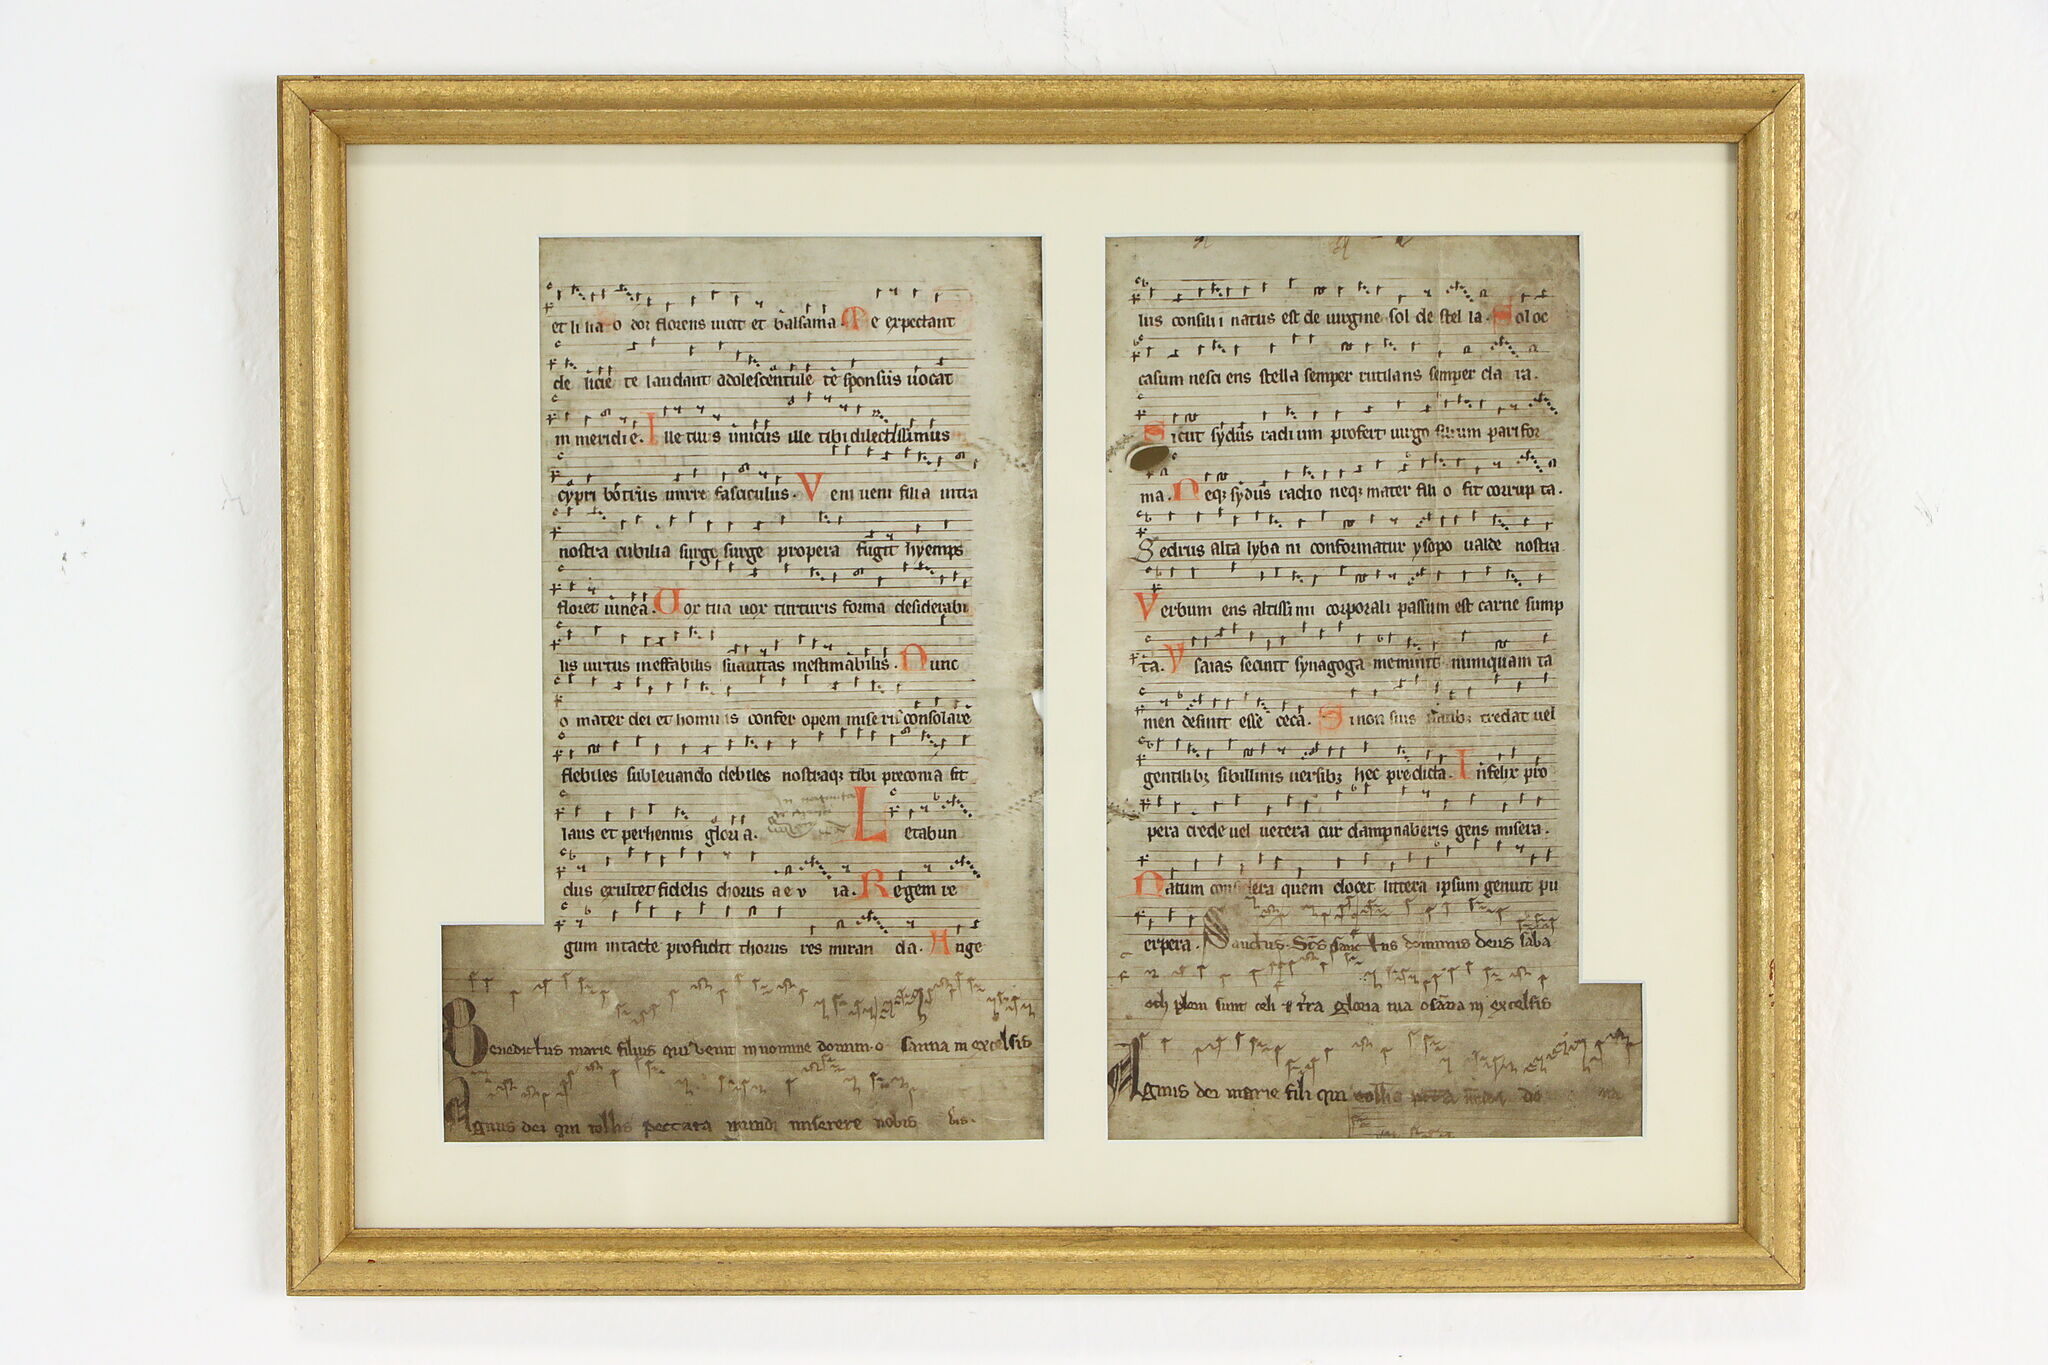 et li lia o dor florens uicit et balsama. Te expectant
de licie te laudant adolescentule te sponsus uocat
in meridie. Ille tuus unicus ille tibi dilectissimus
cypri botrus mirre fasciculus. Veni ueni filia intra
nostra cubilia surge surge propera fugit hyemps
floret uinea. Vox tua uox turturis forma desiderabi
lis uirtus ineffabilis suauitas inestimabilis. Nunc
o mater dei et hominis confer opem miseris consolare
flebiles subleuando debiles nostraq; tibi preconia sit
laus et perhennis gloria. Letabun
dus exultet fidelis chorus a e v ia. Regem re
gum intacte profudit thorus res miran da. Ange
Benedictus marie filius qui venit in nomine domini o sanna in excelsis
Agnus dei qui tollis peccata mundi miserere nobis bis.
lus consilii natus est de uirgine sol de stel la. Sol oc
casum nesci ens stella semper rutilans semper cla ra.
Sicut sydus radi um profert uirgo filium pari for
ma. Neq; sydus radio neq; mater fili o fit corrup ta.
Cedrus alta lyba ni conformatur ysopo ualde nostra
Verbum ens altissimi corporali passum est carne sump
ta. Ysaias cecinit synagoga meminit numquam ta
men desinit esse ceca. Si non suis uatib; credat uel
gentilib; sibillinis uersib; hec predicta. Infelix pro
pera crede uel uetera cur dampnaberis gens misera.
Natum considera quem docet littera ipsum genuit pu
erpera. Sanctus. Scs sanctus dominus deus saba
oth pleni sunt celi & terra gloria tua osanna in excelsis
Agnus dei marie fili qui tollis